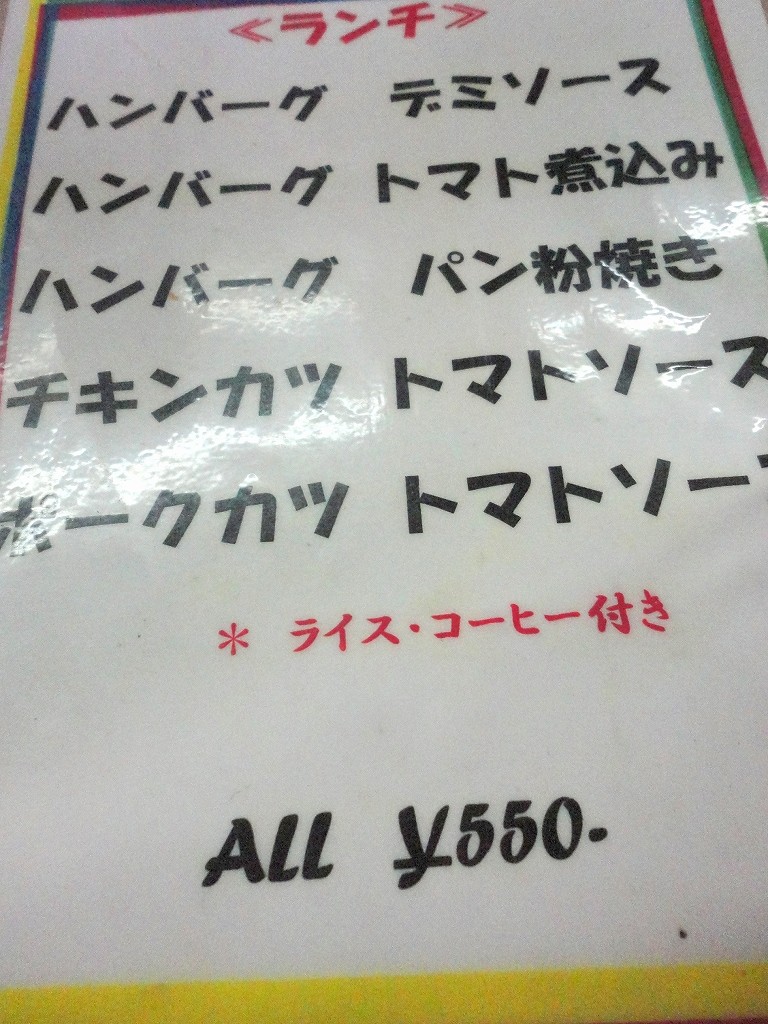 ≪ランチ≫
ハンバーグ デミソース
ハンバーグ トマト煮込み
ハンバーグ パン粉焼き
チキンカツ トマトソース
ポークカツ トマトソース
＊ ライス・コーヒー付き
ALL ¥550-